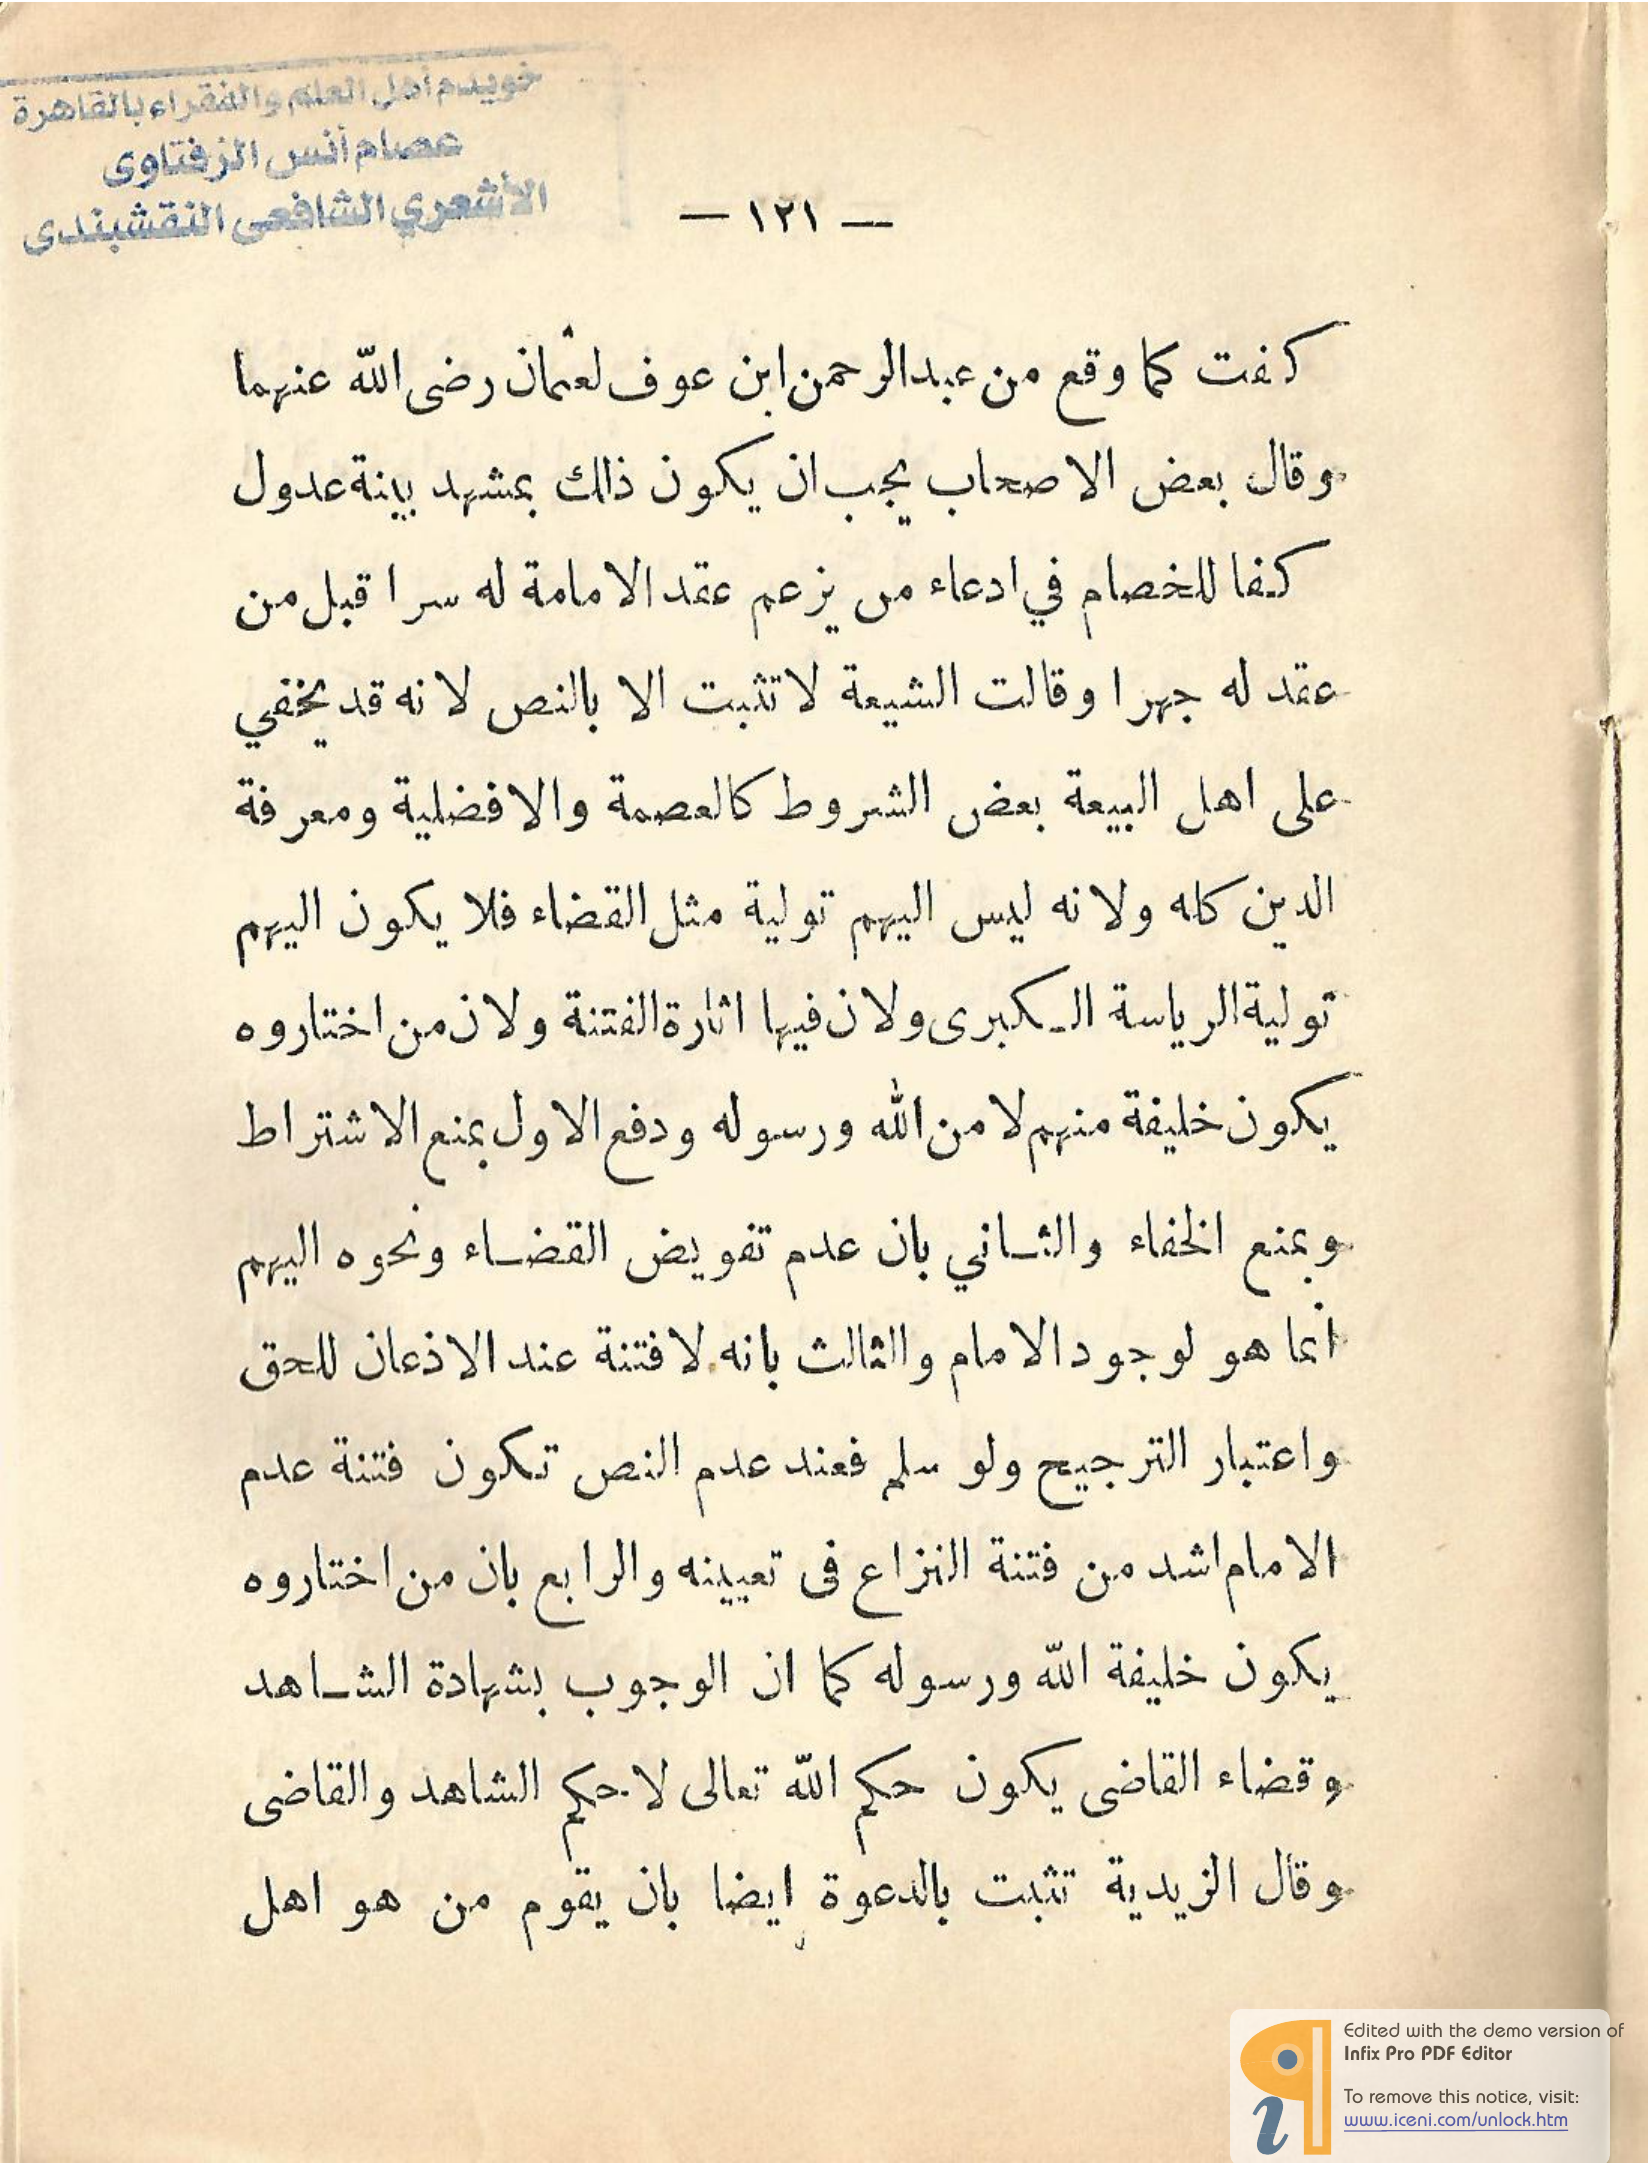 خويدم أهل العلم والفقراء بالقاهرة
عصام أنس الزفتاوى
الأشعري الشافعى النقشبندى
— ١٢١ —
كفت كما وقع من عبدالرحمن ابن عوف لعثمان رضى الله عنهما
وقال بعض الاصحاب يجب ان يكون ذلك بمشهد بينة عدول
كفا للخصام في ادعاء من يزعم عقد الامامة له سرا قبل من
عقد له جهرا وقالت الشيعة لا تثبت الا بالنص لانه قد يخفي
على اهل البيعة بعض الشروط كالعصمة والافضلية ومعرفة
الدين كله ولانه ليس اليهم تولية مثل القضاء فلا يكون اليهم
تولية الرياسة الكبرى ولان فيها اثارة الفتنة ولان من اختاروه
يكون خليفة منهم لا من الله ورسوله ودفع الاول بمنع الاشتراط
وبمنع الخفاء والثاني بان عدم تفويض القضاء ونحوه اليهم
انما هو لوجود الامام والثالث بانه لا فتنة عند الاذعان للحق
واعتبار الترجيح ولو سلم فعند عدم النص تكون فتنة عدم
الامام اشد من فتنة النزاع فى تعيينه والرابع بان من اختاروه
يكون خليفة الله ورسوله كما ان الوجوب بشهادة الشاهد
وقضاء القاضى يكون حكم الله تعالى لا حكم الشاهد والقاضى
وقال الزيدية تثبت بالدعوة ايضا بان يقوم من هو اهل
Edited with the demo version of
Infix Pro PDF Editor
To remove this notice, visit:
www.iceni.com/unlock.htm